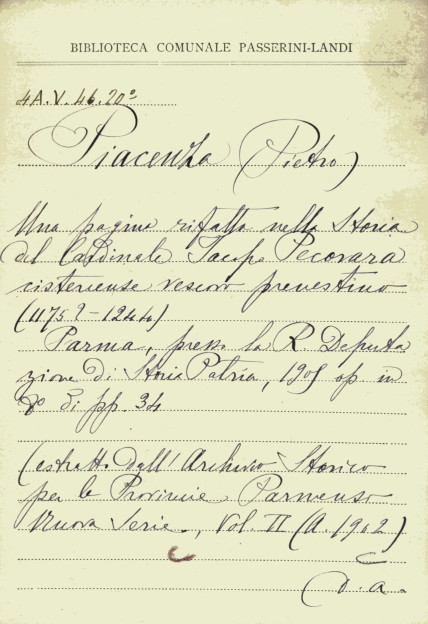 BIBLIOTECA COMUNALE PASSERINI-LANDI
4A.V.46.20º
Piacenza (Pietro)
Una pagina rifatta nella Storia
del Cardinale Jacopo Pecorara
cisterciense vescovo prenestino
(1175?-1244)
Parma, presso la R. Deputa
zione di Storia Patria, 1905 op in
8º di pp. 34
(estratto dall' Archivio Storico
per le Provincie Parmensi
Nuova Serie, Vol. II (A. 1902)
D. a.